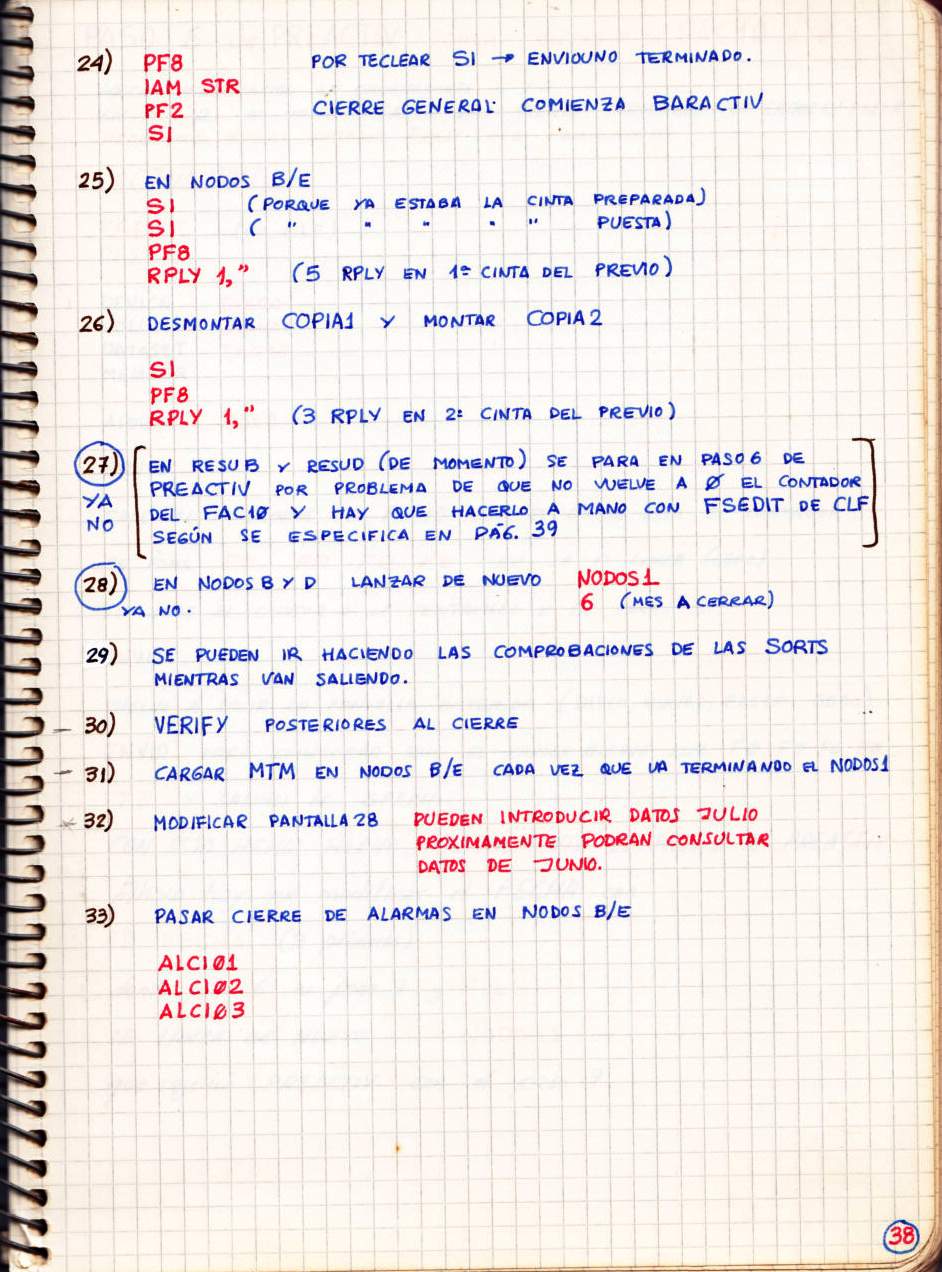 24) PF8 POR TECLEAR SI → ENVIOUNO TERMINADO.
IAM STR
PF2 CIERRE GENERAL COMIENZA BARACTIV
SI
25) EN NODOS B/E
SI (PORQUE YA ESTABA LA CINTA PREPARADA)
SI ( " " " " " PUESTA)
PF8
RPLY 1," (5 RPLY EN 1ª CINTA DEL PREVIO)
26) DESMONTAR COPIA1 Y MONTAR COPIA2
SI
PF8
RPLY 1," (3 RPLY EN 2ª CINTA DEL PREVIO)
27) EN RESUB Y RESUD (DE MOMENTO) SE PARA EN PASO6 DE
YA PREACTIV POR PROBLEMA DE QUE NO VUELVE A Ø EL CONTADOR
NO DEL FAC1Ø Y HAY QUE HACERLO A MANO CON FSEDIT DE CLF
SEGÚN SE ESPECIFICA EN PÁG. 39
28) EN NODOS B Y D LANZAR DE NUEVO NODOS1
YA NO. 6 (MES A CERRAR)
29) SE PUEDEN IR HACIENDO LAS COMPROBACIONES DE LAS SORTS
MIENTRAS VAN SALIENDO.
- 30) VERIFY POSTERIORES AL CIERRE
- 31) CARGAR MTM EN NODOS B/E CADA VEZ QUE VA TERMINANDO EL NODOS1
32) MODIFICAR PANTALLA 28 PUEDEN INTRODUCIR DATOS JULIO
PROXIMAMENTE PODRAN CONSULTAR
DATOS DE JUNIO.
33) PASAR CIERRE DE ALARMAS EN NODOS B/E
ALCIØ1
ALCIØ2
ALCIØ3
38